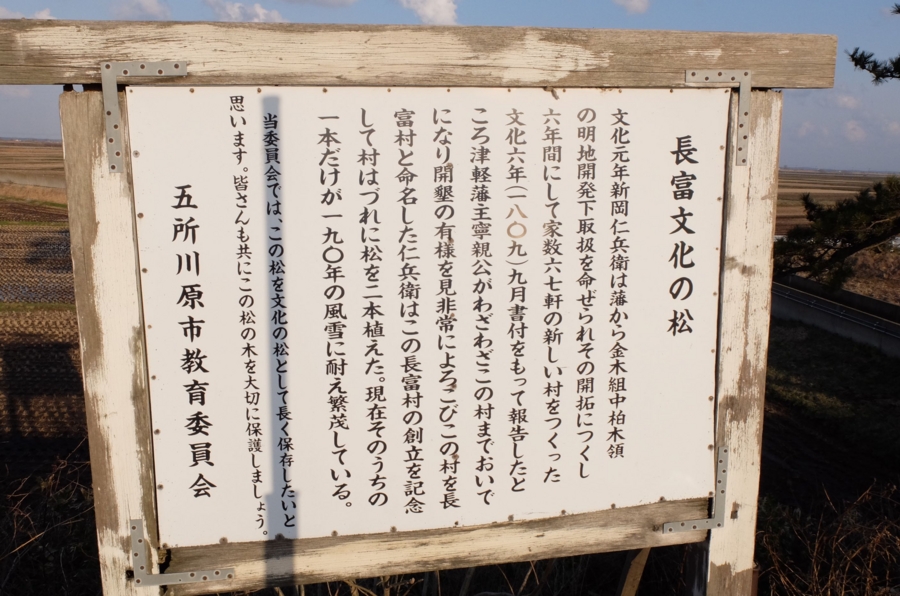 長富文化の松
文化元年新岡仁兵衛は藩から金木組中柏木領
の明地開発下取扱を命ぜられその開拓につくし
六年間にして家数六七軒の新しい村をつくった
文化六年(一八〇九)九月書付をもって報告したと
ころ津軽藩主寧親公がわざわざこの村までおいで
になり開墾の有様を見非常によろこびこの村を長
富村と命名した仁兵衛はこの長富村の創立を記念
して村はづれに松を二本植えた。現在そのうちの
一本だけが一九〇年の風雪に耐え繁茂している。
当委員会では、この松を文化の松として長く保存したいと
思います。皆さんも共にこの松の木を大切に保護しましょう。
五所川原市教育委員会